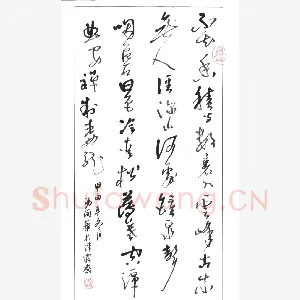 不知香積寺數里入雲峰古木
無人徑深山何處鐘泉聲
咽危石日色冷青松薄暮空潭
曲安禪制毒龍
Shufawang.CN